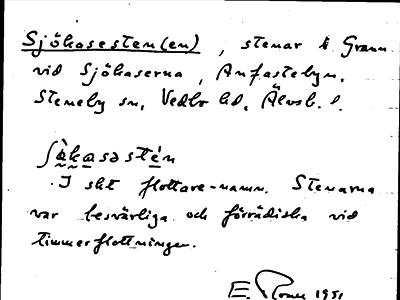 Sjökasesten(en), stenar i Grann
vid Sjökaserna, Anfastebyn.
Steneby sn, Vedbo hd, Älvsb. l.
ʃὰkasəstén
I skt flottare-namn. Stenarna
var besvärliga och förrädiska vid
timmerflottningen.
E. 1951